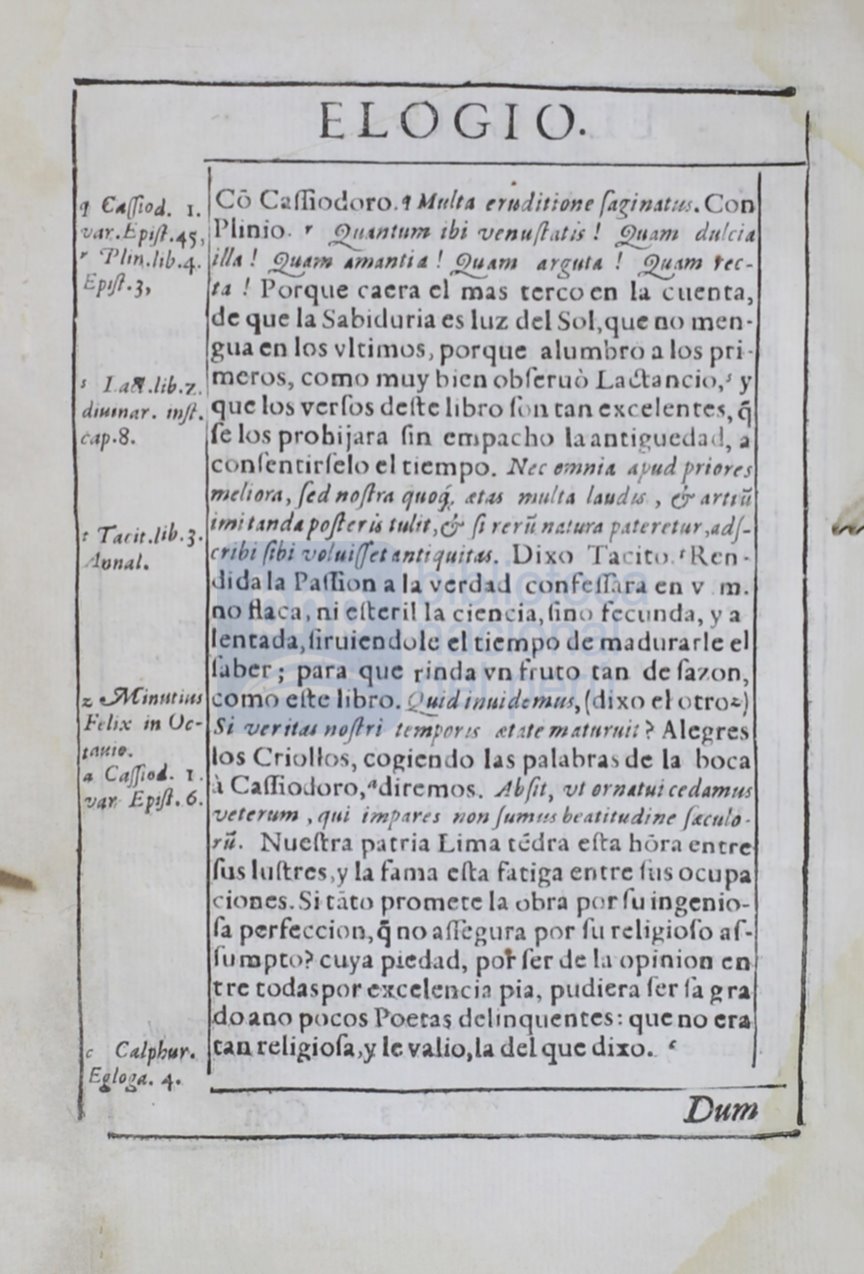 ELOGIO.
q Caſſiod. 1.
var.Epiſt.45,
r Plin.lib.4.
Epiſt.3,
s Lact.lib.2.
diuinar. inſt.
cap.8.
t Tacit.lib.3.
Annal.
z Minutius
Felix in Oc-
tauio.
a Caſſiod. 1.
var Epiſt. 6.
c Calphur.
Egloga. 4.
Cō Caſſiodoro. q Multa eruditione ſaginatus. Con
Plinio. r Quantum ibi venuſtatis ! Quam dulcia
illa ! Quam amantia ! Quam arguta ! Quam rec-
ta ! Porque caera el mas terco en la cuenta,
de que la Sabiduria es luz del Sol, que no men-
gua en los vltimos, porque alumbro a los pri-
meros, como muy bien obſeruò Lactancio, s y
que los verſos deſte libro ſon tan excelentes, q̄
ſe los prohijara ſin empacho la antiguedad, a
conſentirſelo el tiempo. Nec omnia apud priores
meliora, ſed noſtra quoq; ætas multa laudis , & artiū
imitanda poſteris tulit, & ſi rerū natura pateretur, adſ-
cribi ſibi voluiſſet antiquitas. Dixo Tacito. t Ren-
dida la Paſſion a la verdad confeſſara en v m.
no flaca, ni eſteril la ciencia, ſino fecunda, y a
lentada, ſiruiendole el tiempo de madurarle el
ſaber ; para que rinda vn fruto tan de ſazon,
como eſte libro. Quid inuidemus, (dixo el otro z)
Si veritas noſtri temporis ætate maturuit ? Alegres
los Criollos, cogiendo las palabras de la boca
à Caſſiodoro, a diremos. Abſit, vt ornatui cedamus
veterum , qui impares non ſumus beatitudine ſæculo-
rū. Nueſtra patria Lima tēdra eſta hōra entre
ſus luſtres, y la fama eſta fatiga entre ſus ocupa
ciones. Si tāto promete la obra por ſu ingenio-
ſa perfeccion, q̄ no aſſegura por ſu religioſo aſ-
ſumpto? cuya piedad, por ſer de la opinion en
tre todas por excelencia pia, pudiera ſer ſagra
do a no pocos Poetas delinquentes: que no era
tan religioſa, y le valio, la del que dixo. c
Dum